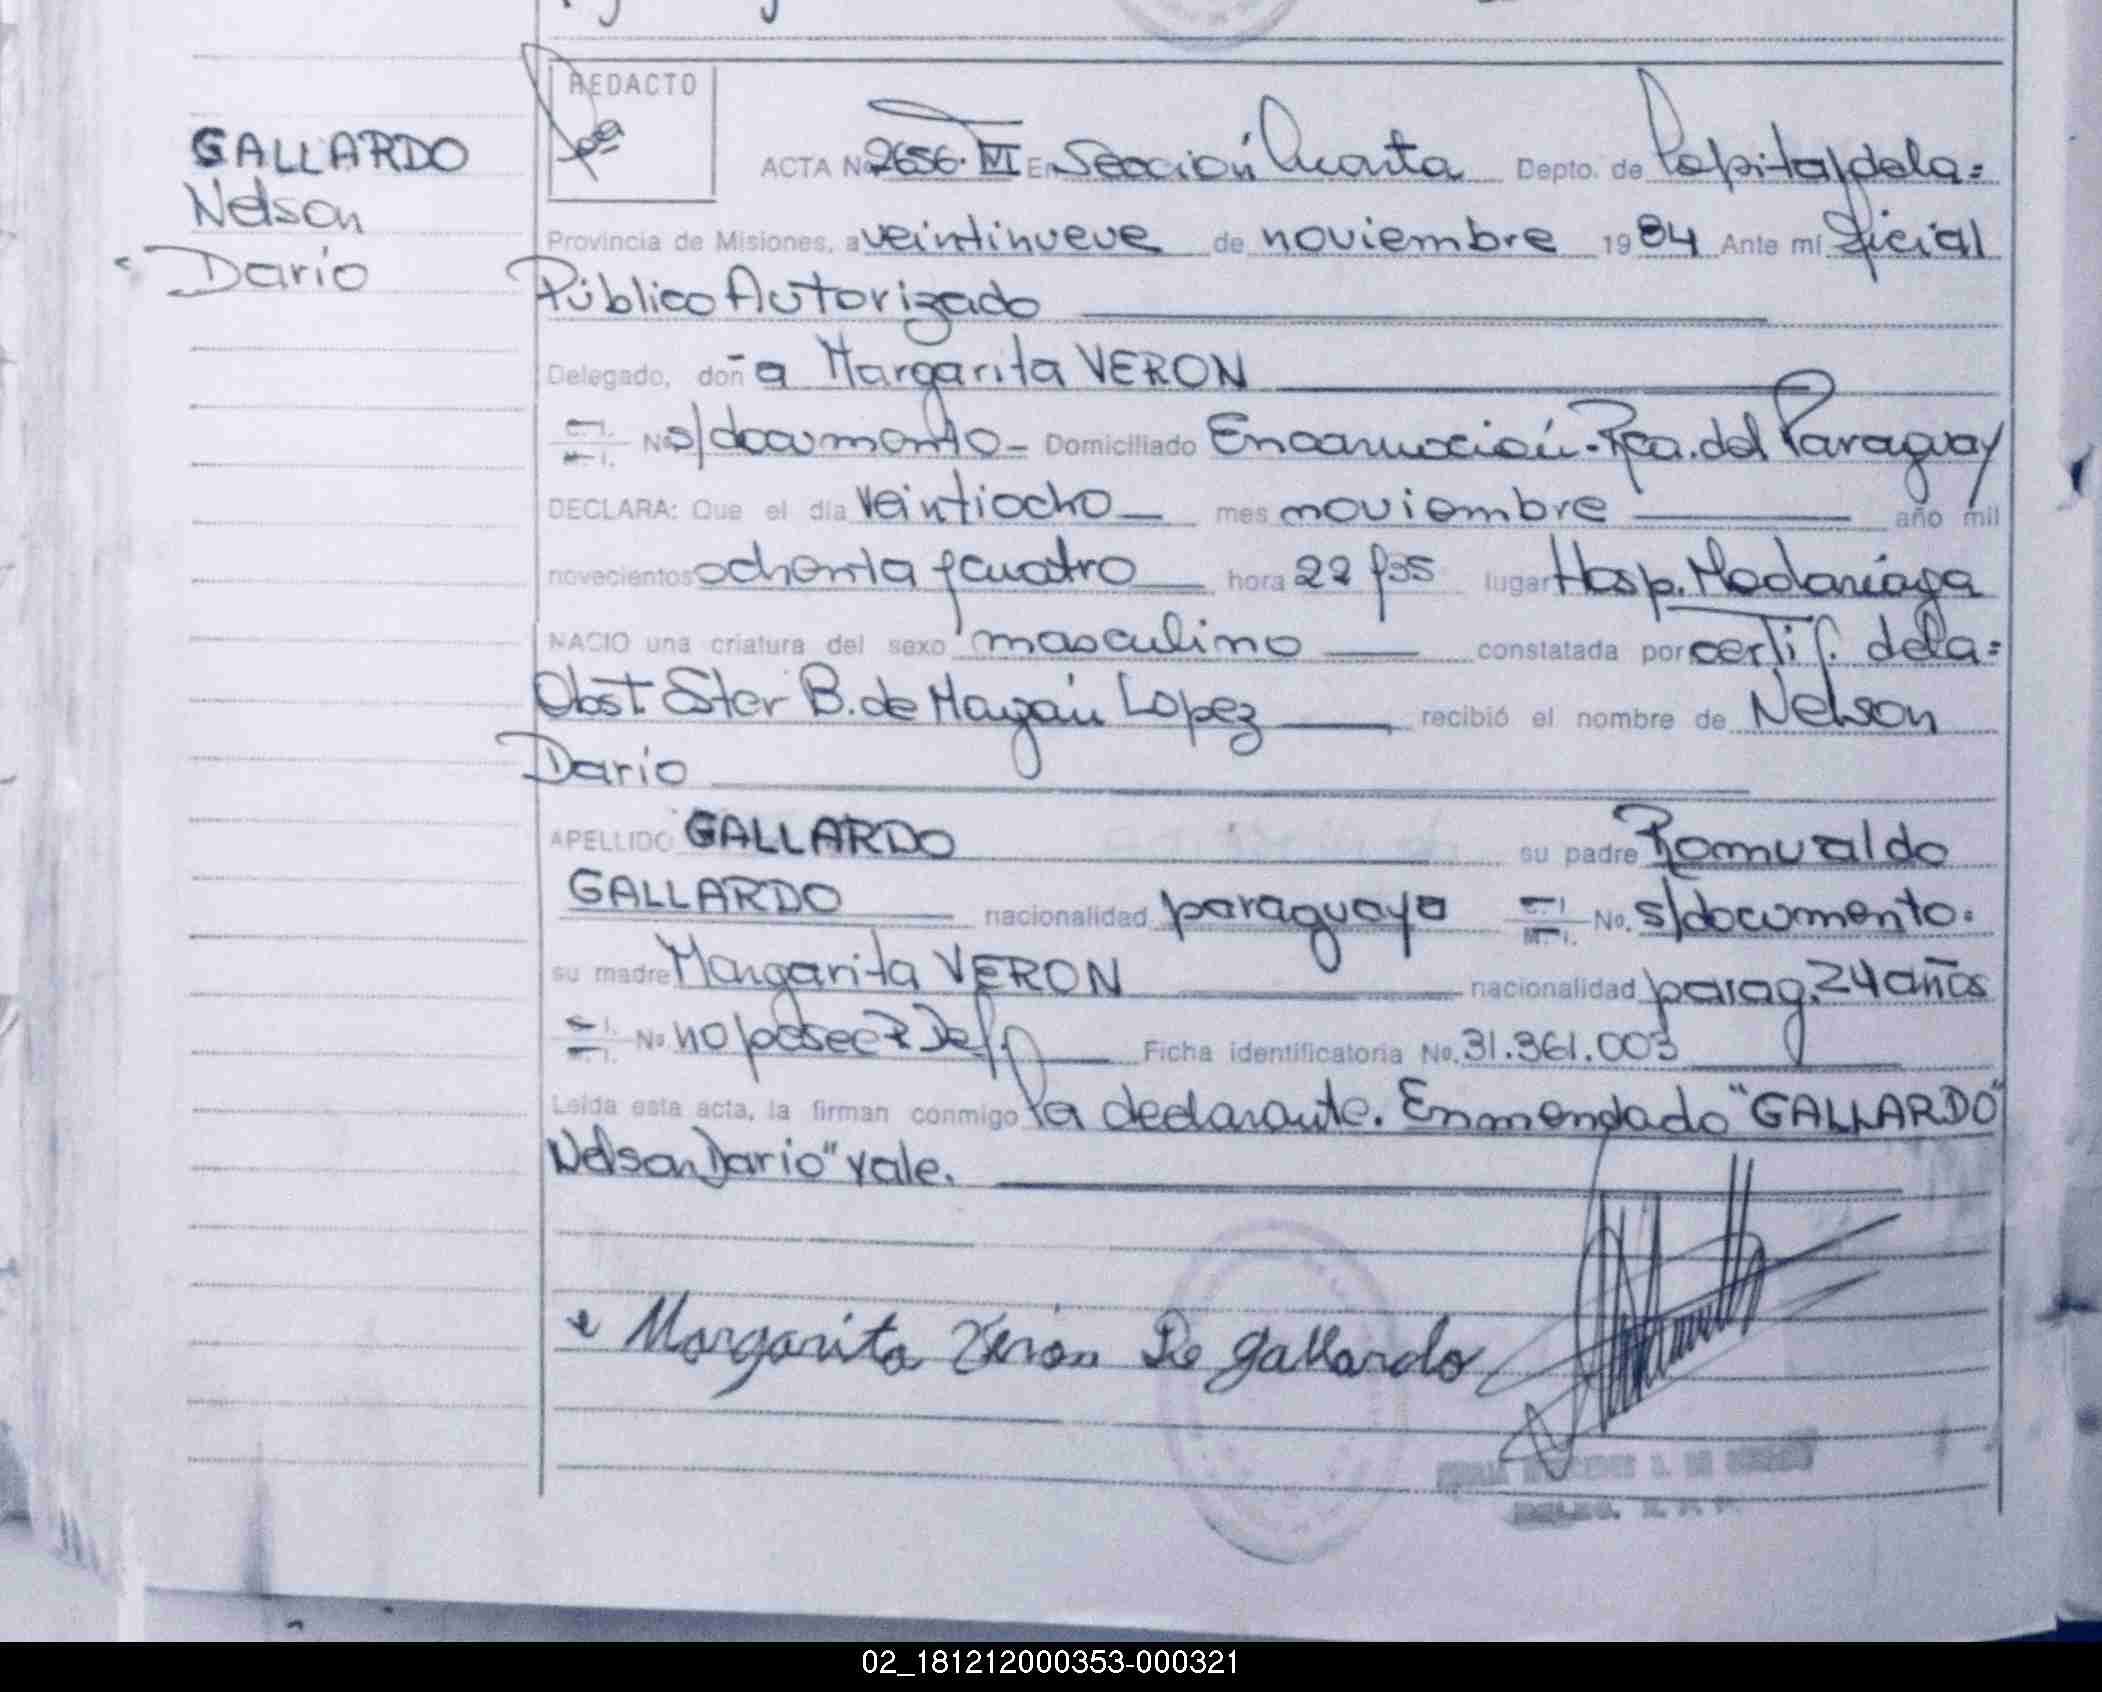 REDACTO
GALLARDO
Nelson
Dario
ACTA No 2656. VI En Sección Cuarta Depto. de Capital dela=
Provincia de Misiones, a veintinueve de noviembre 1984 Ante mí Oficial
Público Autorizado
Delegado, doña Margarita VERON
C. I. M. I. No s/documento - Domiciliado Encarnación - Rca. del Paraguay
DECLARA: Que el día veintiocho mes noviembre año mil
novecientos ochenta y cuatro hora 22 y 35 lugar Hosp. Madariaga
NACIO una criatura del sexo masculino constatada por certif. dela=
Obst Ster B. de Mayán Lopez recibió el nombre de Nelson
Dario
APELLIDO GALLARDO su padre Romualdo
GALLARDO nacionalidad paraguaya C. I. M. I. No. s/documento.
su madre Margarita VERON nacionalidad parag. 24 años
C. I. M. I. No no posee Ficha identificatoria No. 31.361.003
Leida esta acta, la firman conmigo la declarante. Enmendado "GALLARDO"
Nelson Dario" vale.
Margarita Verón De gallardo
02_181212000353-000321